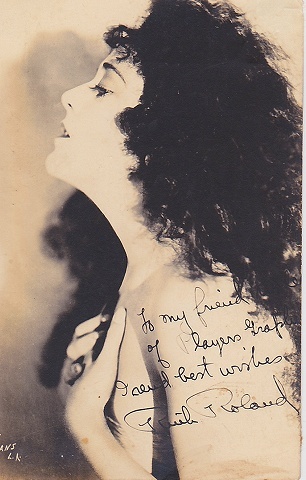 To my friend
of Players Graph
I send best wishes
Ruth Roland
ANS
L.A.